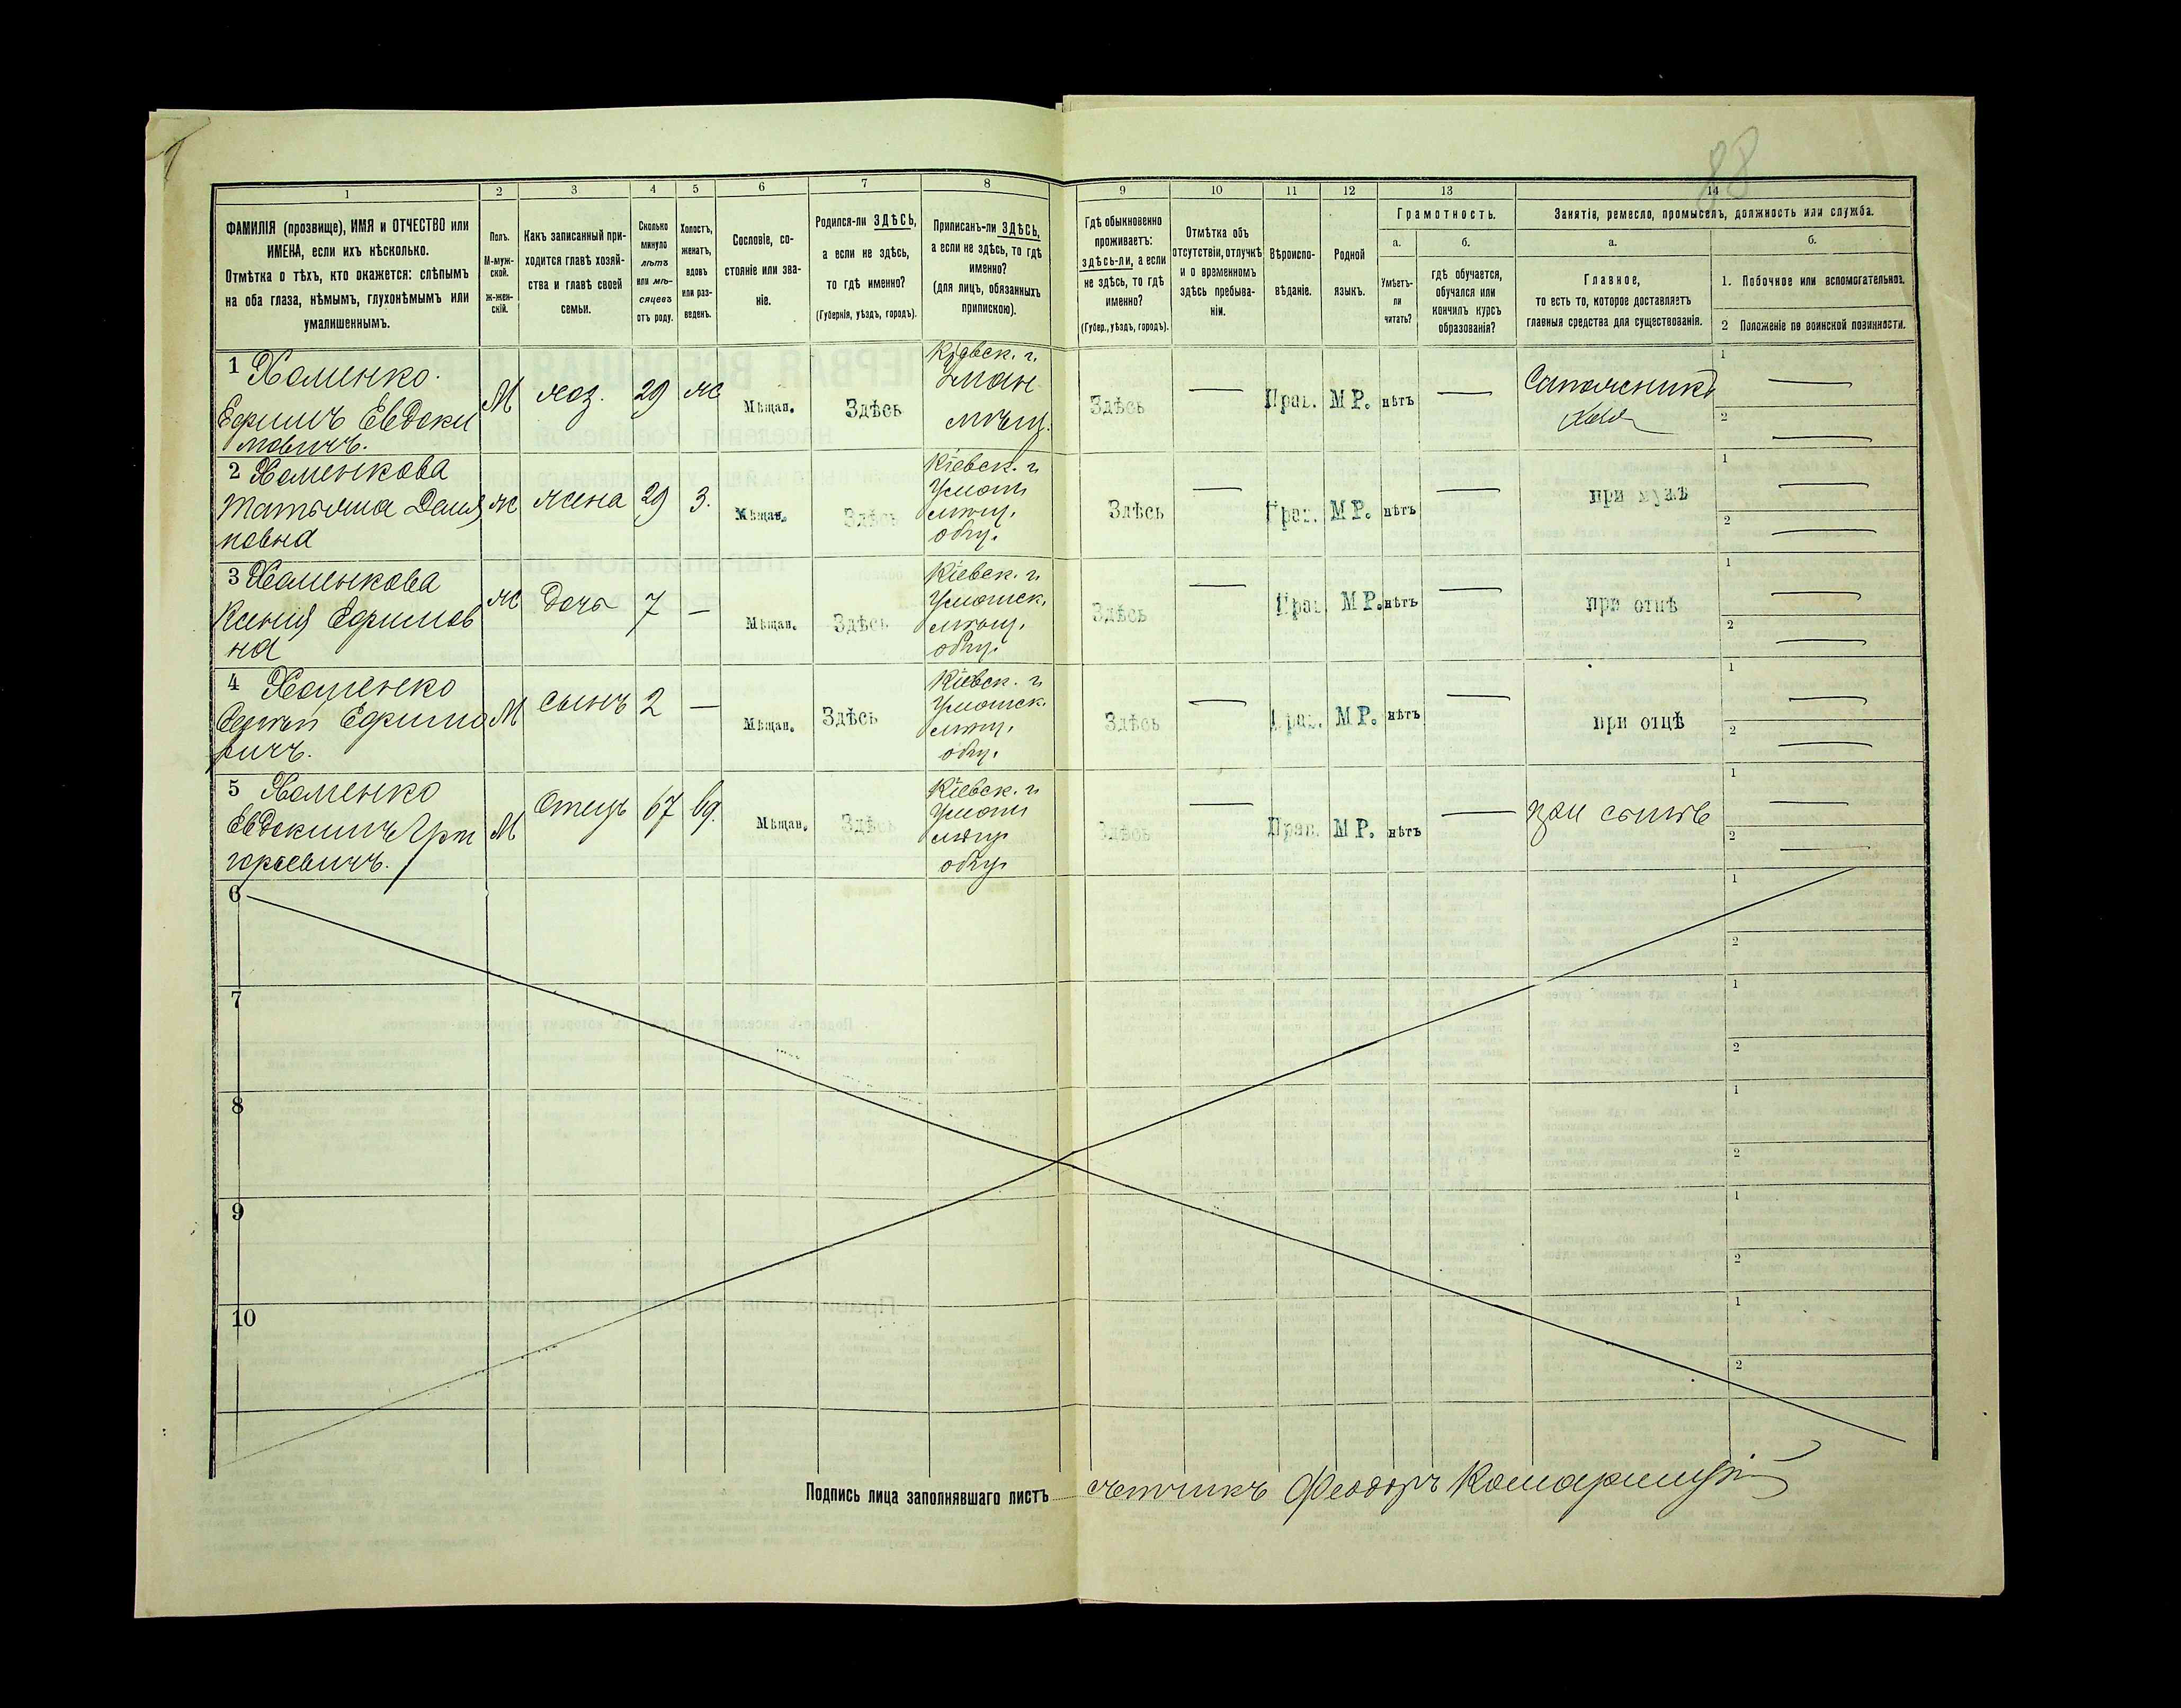 88
1 2 3 4 5 6 7 8 9 10 11 12 13 14
ФАМИЛІЯ (прозвище), ИМЯ и ОТЧЕСТВО или
ИМЕНА, если ихъ нѣсколько.
Отмѣтка о тѣхъ, кто окажется: слѣпымъ
на оба глаза, нѣмымъ, глухонѣмымъ или
умалишеннымъ.
Полъ.
М-муж-
ской.
ж-жен-
скій.
Какъ записанный при-
ходится главѣ хозяй-
ства и главѣ своей
семьи.
Сколько
минуло
лѣтъ
или мѣ-
сяцевъ
отъ роду.
Холостъ,
женатъ,
вдовъ
или раз-
веденъ.
Сословіе, со-
стояніе или зва-
ніе.
Родился-ли ЗДѢСЬ,
а если не здѣсь,
то гдѣ именно?
(Губернія, уѣздъ, городъ).
Приписанъ-ли ЗДѢСЬ,
а если не здѣсь, то гдѣ
именно?
(для лицъ, обязанныхъ
припискою).
Гдѣ обыкновенно
проживаетъ:
здѣсь-ли, а если
не здѣсь, то гдѣ
именно?
(Губер., уѣздъ, городъ).
Отмѣтка объ
отсутствіи, отлучкѣ
и о временномъ
здѣсь пребыва-
ніи.
Вѣроиспо-
вѣданіе.
Родной
языкъ.
Грамотность.
а.
Умѣетъ-
ли
читать?
б.
гдѣ обучается,
обучался или
кончилъ курсъ
образованія?
Занятіе, ремесло, промыселъ, должность или служба.
а.
Главное,
то есть то, которое доставляетъ
главныя средства для существованія.
б.
1. Побочное или вспомогательное.
2 Положеніе по воинской повинности.
1 Хоменко.
Ефимъ Евдоки
мовичъ.
М хоз. 29 ж Мѣщан. Здѣсь
Кіевск. г.
Уман
мѣщ.
Здѣсь — Прав. МР. нѣтъ — Сапожникъ
Хоз
1 —
2 —
2 Хоменкова
Татьяна Демя
новна
ж жена 29 з. Мѣщан. Здѣсь
Кіевск. г.
Уман
мѣщ.
общ.
Здѣсь — Прав. МР. нѣтъ — при мужѣ
1 —
2 —
3 Хоменкова
Ксенія Ефимов
на
ж дочь 7 — Мѣщан. Здѣсь
Кіевск. г.
Уманск.
мѣщ.
общ.
Здѣсь — Прав МР. нѣтъ — при отцѣ
1 —
2 —
4 Хоменко
Сергѣй Ефимо
вичъ.
М сынъ 2 — Мѣщан. Здѣсь
Кіевск. г.
Уманск.
мѣщ.
общ.
Здѣсь — Прав. МР. нѣтъ — при отцѣ
1 —
2 —
5 Хоменко
Евдокимъ Гри
горьевичъ.
М Отецъ 67 вд. Мѣщан. Здѣсь
Кіевск. г.
Уман
мѣщ
общ
Здѣсь — Прав. МР. нѣтъ — при сынѣ
1 —
2 —
6 1
2
7 1
2
8 1
2
9 1
2
10 1
2
Подпись лица заполнявшаго листъ счетчикъ Феодоръ Комарницкій